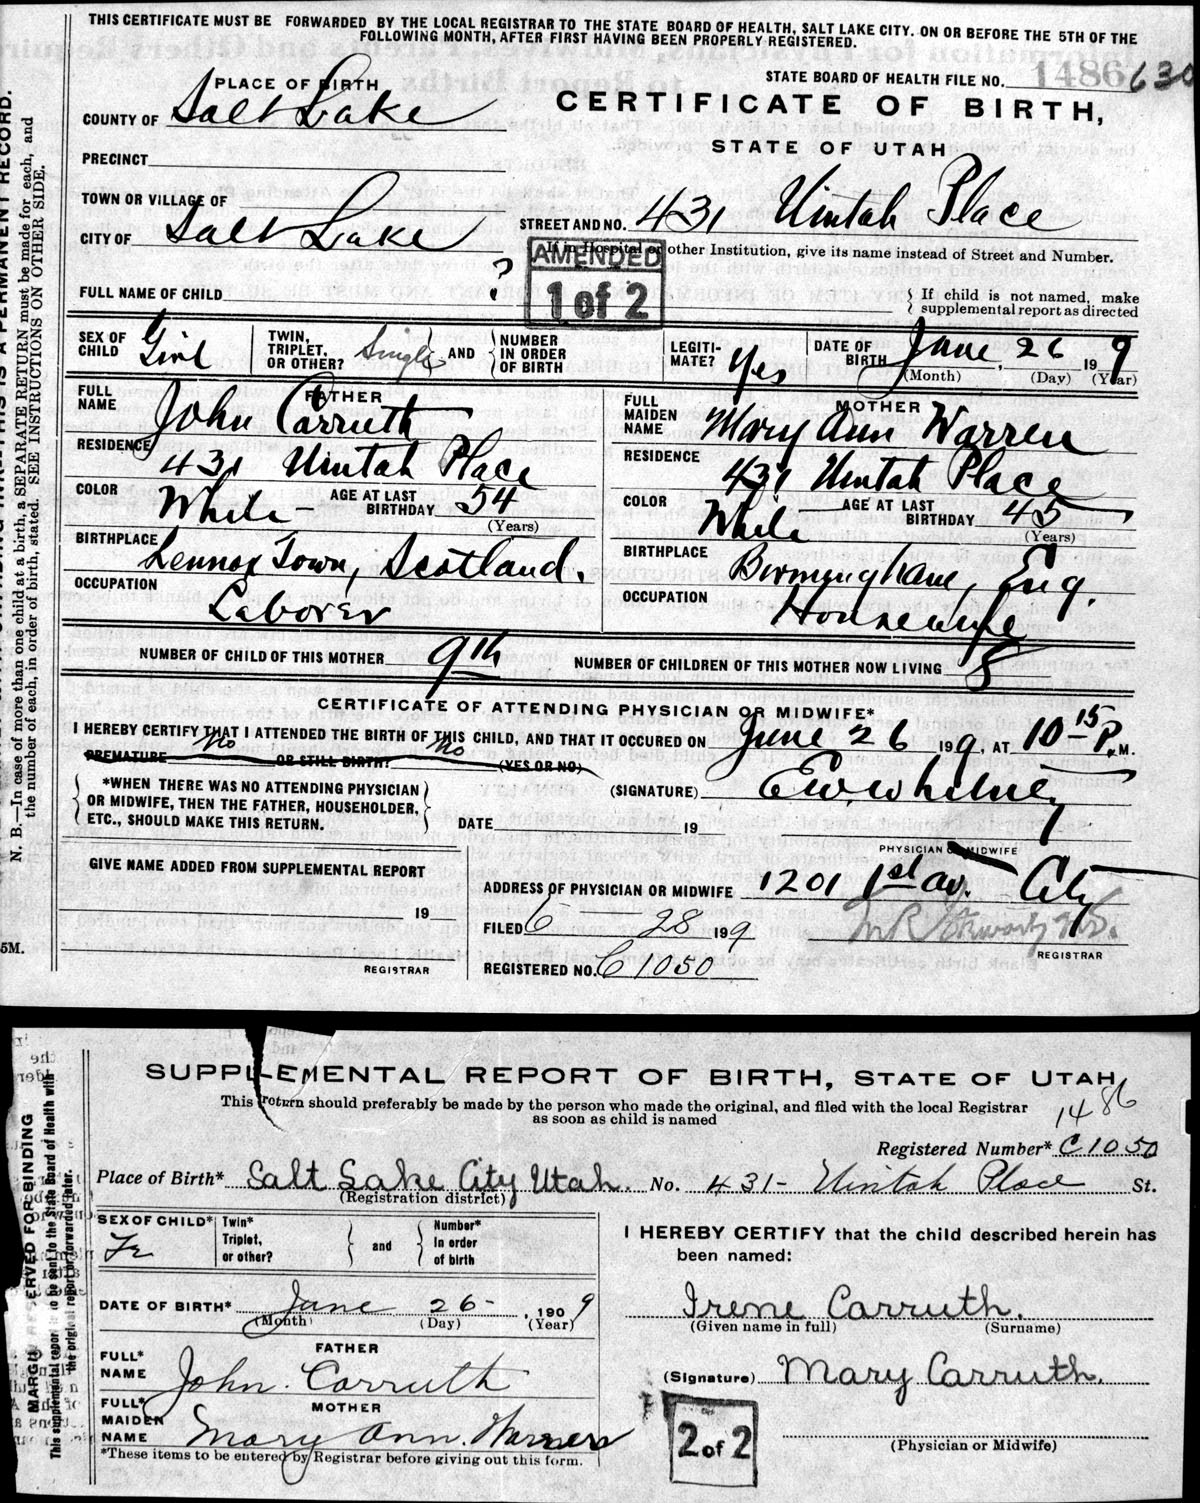 THIS CERTIFICATE MUST BE FORWARDED BY THE LOCAL REGISTRAR TO THE STATE BOARD OF HEALTH, SALT LAKE CITY. ON OR BEFORE THE 5TH OF THE
FOLLOWING MONTH, AFTER FIRST HAVING BEEN PROPERLY REGISTERED.
STATE BOARD OF HEALTH FILE NO. 1486 630
PLACE OF BIRTH
CERTIFICATE OF BIRTH,
COUNTY OF Salt Lake
STATE OF UTAH
PRECINCT
TOWN OR VILLAGE OF
STREET AND NO. 431 Uintah Place
CITY OF Salt Lake
If in Hospital or other Institution, give its name instead of Street and Number.
AMENDED
1 of 2
FULL NAME OF CHILD ?
If child is not named, make
supplemental report as directed
SEX OF CHILD Girl
TWIN, TRIPLET, OR OTHER? Single AND NUMBER IN ORDER OF BIRTH
LEGITI-MATE? Yes
DATE OF BIRTH June 26 19 9
(Month) (Day) (Year)
FATHER
FULL NAME John Carruth
RESIDENCE 431 Uintah Place
COLOR White AGE AT LAST BIRTHDAY 54
(Years)
BIRTHPLACE Lennox Town, Scotland.
OCCUPATION Laborer
MOTHER
FULL MAIDEN NAME Mary Ann Warren
RESIDENCE 431 Uintah Place
COLOR White AGE AT LAST BIRTHDAY 45
(Years)
BIRTHPLACE Birmingham, Eng.
OCCUPATION Housewife
NUMBER OF CHILD OF THIS MOTHER 9th NUMBER OF CHILDREN OF THIS MOTHER NOW LIVING 8
CERTIFICATE OF ATTENDING PHYSICIAN OR MIDWIFE*
I HEREBY CERTIFY THAT I ATTENDED THE BIRTH OF THIS CHILD, AND THAT IT OCCURED ON June 26 19 9, AT 10 15 P.M.
PREMATURE No OR STILL BIRTH? No (YES OR NO)
*WHEN THERE WAS NO ATTENDING PHYSICIAN
OR MIDWIFE, THEN THE FATHER, HOUSEHOLDER,
ETC., SHOULD MAKE THIS RETURN.
(SIGNATURE) E.W. Whitney
DATE 19
PHYSICIAN OR MIDWIFE
GIVE NAME ADDED FROM SUPPLEMENTAL REPORT
19
REGISTRAR
ADDRESS OF PHYSICIAN OR MIDWIFE 1201 1st av. City
FILED 6 28 19 9
REGISTERED NO. C 1050
REGISTRAR
N. B.—In case of more than one child at a birth, a SEPARATE RETURN must be made for each, and
the number of each, in order of birth, stated. SEE INSTRUCTIONS ON OTHER SIDE.
5M.
SUPPLEMENTAL REPORT OF BIRTH, STATE OF UTAH
This return should preferably be made by the person who made the original, and filed with the local Registrar
as soon as child is named
1486
Registered Number* C 1050
Place of Birth* Salt Lake City Utah. No. 431- Uintah Place St.
(Registration district)
SEX OF CHILD* Fe
Twin* Triplet, or other? and Number* In order of birth
DATE OF BIRTH* June 26- , 190 9
(Month) (Day) (Year)
FATHER
FULL* NAME John Carruth
MOTHER
FULL* MAIDEN NAME Mary Ann Warren
*These items to be entered by Registrar before giving out this form.
I HEREBY CERTIFY that the child described herein has
been named:
Irene Carruth.
(Given name in full) (Surname)
(Signature) Mary Carruth.
2 of 2
(Physician or Midwife)
MARGIN RESERVED FOR BINDING